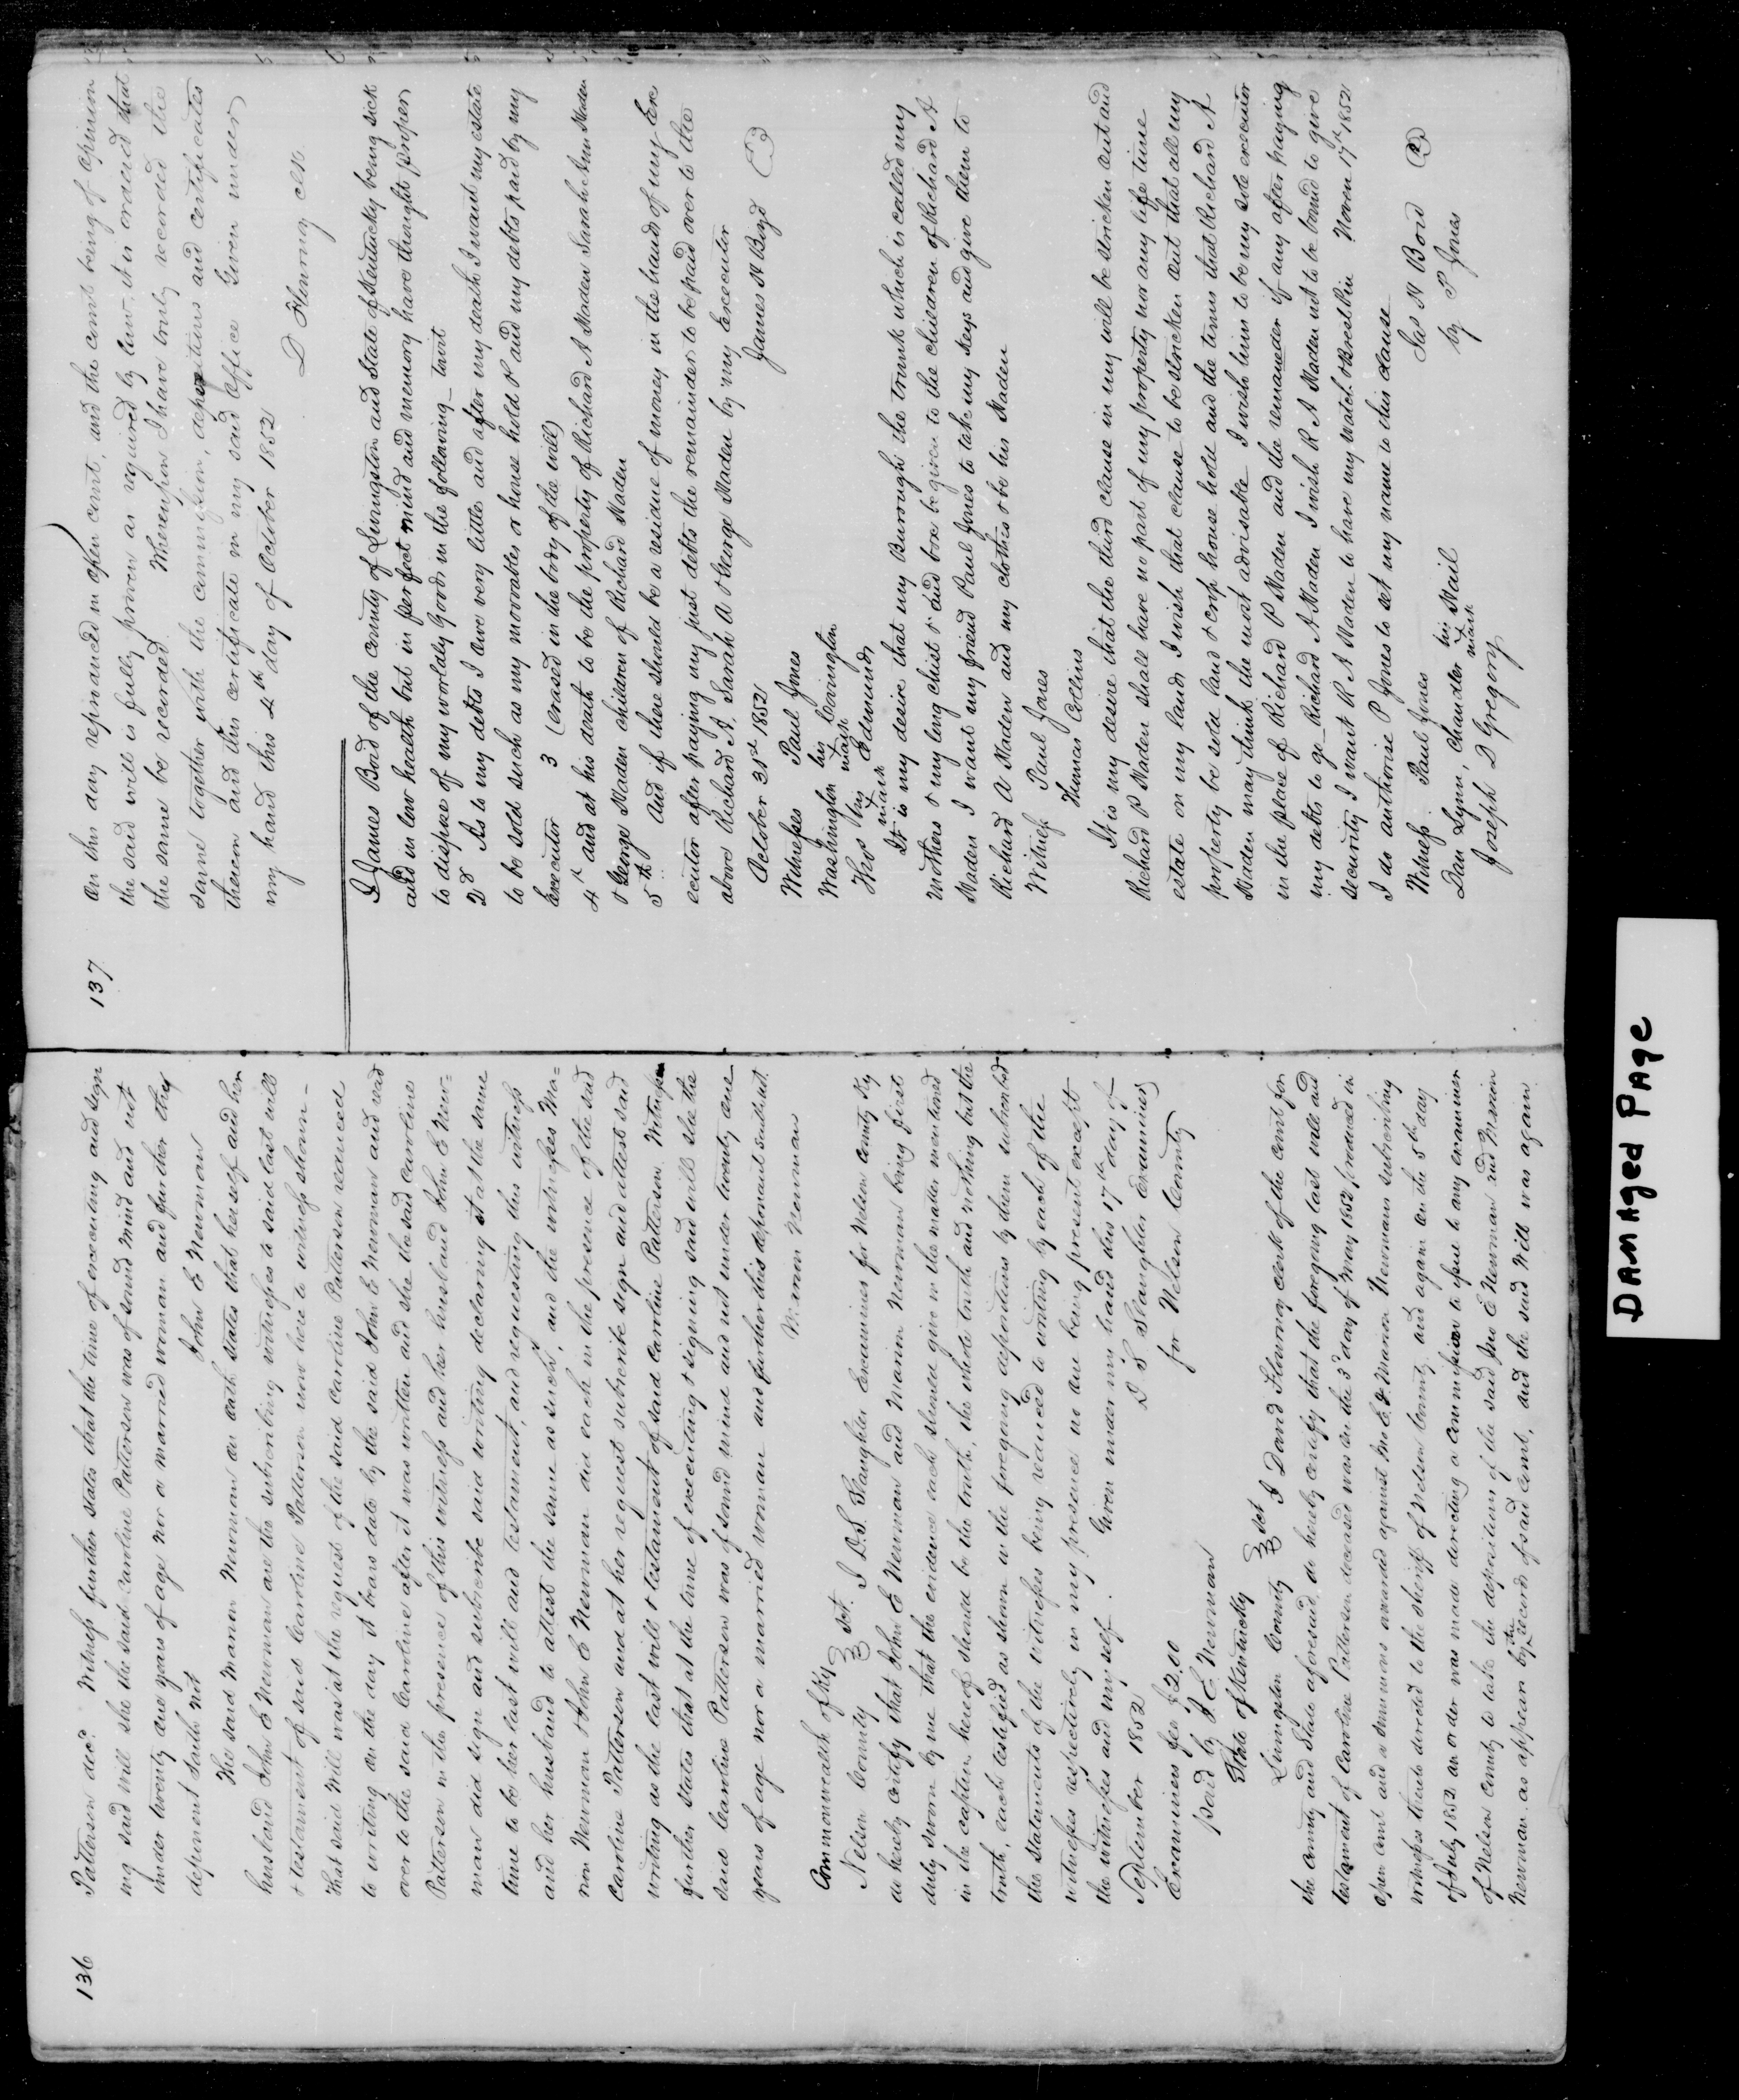 136
Patterson decd. Witness further states that at the time of executing and sign
ing said will she the said Caroline Patterson was of sound mind and not
under twenty one years of age nor a married woman and further this
deponent saith not
John E Newman
The said Marion Newman on oath states that herself and her
husband John E Newman are the subscribing witnesses to said last will
& testament of said Caroline Patterson now here to witness shown -
That said Will was at the request of the said Caroline Patterson reduced
to writing on the day it bears date by the said John E Newman and read
over to the said Caroline after it was written and she the said Caroline
Patterson in the presence of this witness and her husband John E New=
man did sign and subscribe said writing declaring it at the same
time to be her last will and testament, and requesting this witness
and her husband to attest the same as such, and the witnesses Ma=
rion Newman & John E Newman did each in the presence of the said
Caroline Patterson and at her request subscribe sign and attest said
writing as the last will & testament of said Caroline Patterson Witness
further states that at the time of executing & signing said will she the
said Caroline Patterson was of sound mind and not under twenty one
years of age nor a married woman and further this deponent saith not.
Marion Newman
Commonwealth of Ky
Nelson County } sct. I D.S. Slaughter Examiner for Nelson county Ky
do hereby certify that John E Newman and Marion Newman being first
duly sworn by me that the evidence each should give in the matter mentioned
in the caption hereof should be the truth, the whole truth and nothing but the
truth, each testified as shown in the foregoing depositions by them subscribed
the statements of the witnesses being reduced to writing by each of the
witnesses respectively in my presence no one being present except
the witnesses and myself. Given under my hand this 17th day of
September 1852
D S Slaughter Examiner
for Nelson County
Examiners fee $2.00
paid by J E Newman
State of Kentucky
Livingston County } sct I David Flournoy clerk of the court for
the county and State aforesaid, do hereby certify that the foregoing last will and
testament of Caroline Patterson deceased was on the 3d day of May 1852 produced in
open court and a summons awarded against Jno E & Marion Newman subscribing
witnesses thereto directed to the sheriff of Nelson County, and again on the 5th day
of July 1852 an order was made directing a commission to issue to any examiner
of Nelson County to take the depositions of the said Jno E Newman and Marion
Newman as appears by the records of said court, and the said Will was again
137
On this day reproduced in open court, and the court being of opinion
the said will is fully proven as required by law. it is ordered that
the same be recorded. Whereupon I have truly recorded the
same together with the commission, depositions and certificates
thereon and this certificate in my said office Given under
my hand this 4th day of October 1852
D Flournoy clk.
I James Bord of the county of Livingston and State of Kentucky being sick
and in low health but in perfect mind and memory have thought proper
to dispose of my worldly Goods in the following towit
2d As to my debts I owe very little and after my death I want my estate
to be sold such as my moovables or house hold & and my debts paid by my
Executor 3 (erased in the body of the will)
4th and at his death to be the property of Richard A Maden Sarah Ann Maden
& George Maden children of Richard Maden
5th And if there should be a residue of money in the hands of my Exe
ecutor after paying my just debts the remainder to be paid over to the
above Richard A. Sarah A & George Maden by my Executor
October 31st 1852 James N Boyd
Witnesses Paul Jones
Washington his mark Covington
his mark Edmunds
It is my desire that my Burrough the trunk which is called my
Mothers & my long chist & said box be given to the children of Richard A
Maden I want my friend Paul Jones to take my keys and give them to
Richard A Maden and my clothes to be his Maden
Witness Paul Jones
Thomas Collins
It is my desire that the third clause in my will be stricken out and
Richard P Maden shall have no part of my property nor any life time
estate on my land I wish that clause to be stricken out that all my
property be sold land & crop house hold and the terms that Richard A
Maden may think the most advisable I wish him to be my sole executor
in the place of Richard P Maden and the remaneder if any after paying
my debts to go Richard A Maden I wish R A Maden not to be bound to give
security I want R A Maden to have my watch & Brest Pin Novem 17th 1852
I do authorise P Jones to set my name to this clause
Witness Paul Jones Jas N Bord
Dan Lynn, Chandler his mark Mail by P Jones
Joseph D Gregory
DAMAGED PAGE